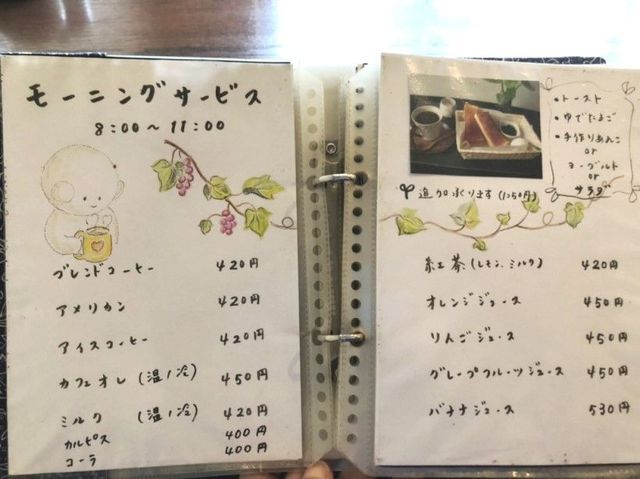 モーニングサービス
8:00～11:00
ブレンドコーヒー 420円
アメリカン 420円
アイスコーヒー 420円
カフェオレ (温/冷) 450円
ミルク (温/冷) 420円
カルピス 400円
コーラ 400円
・トースト
・ゆでたまご
・手作りあんこ
or
ヨーグルト
or
サラダ
追加承ります (1コ50円)
紅茶 (レモン、ミルク) 420円
オレンジジュース 450円
りんごジュース 450円
グレープフルーツジュース 450円
バナナジュース 530円